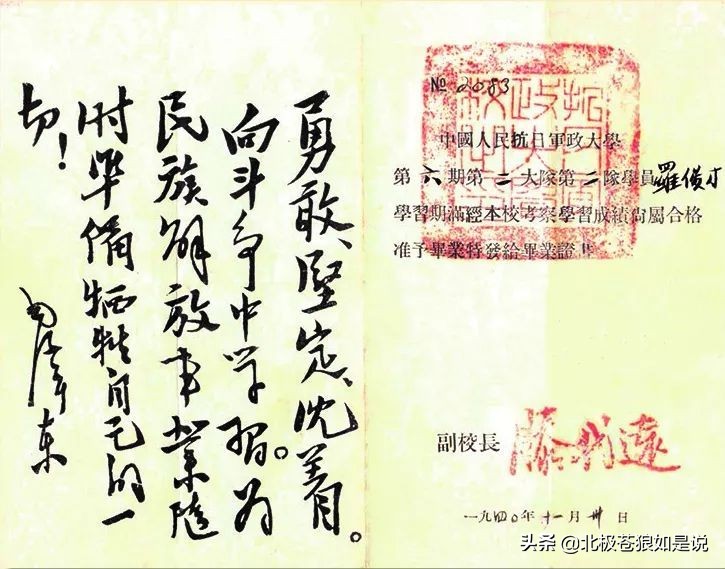 勇敢、堅定、沈着。
向斗争中学習。为
民族解放事業隨
时準備牺牲自己的一
切！
毛澤东
№
中國人民抗日軍政大學
第六期第二大隊第二隊學員羅
學習期滿經本校考察學習成績尚屬合格
准予畢業特發給畢業證書
副校長 滕代遠
一九四〇年十一月卅日
头条 @北极苍狼如是说